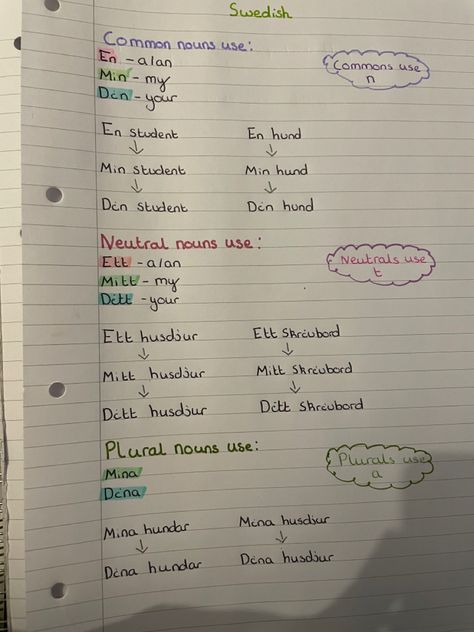 Swedish
Common nouns use:
En - a/an
Min - my
Din - your
Commons use
n
En student En hund
Min student Min hund
Din student Din hund
Neutral nouns use:
Ett - a/an
Mitt - my
Ditt - your
Neutrals use
t
Ett husdjur Ett skrivbord
Mitt husdjur Mitt skrivbord
Ditt husdjur Ditt skrivbord
Plural nouns use:
Mina
Dina
Plurals use
a
Mina hundar Mina husdjur
Dina hundar Dina husdjur